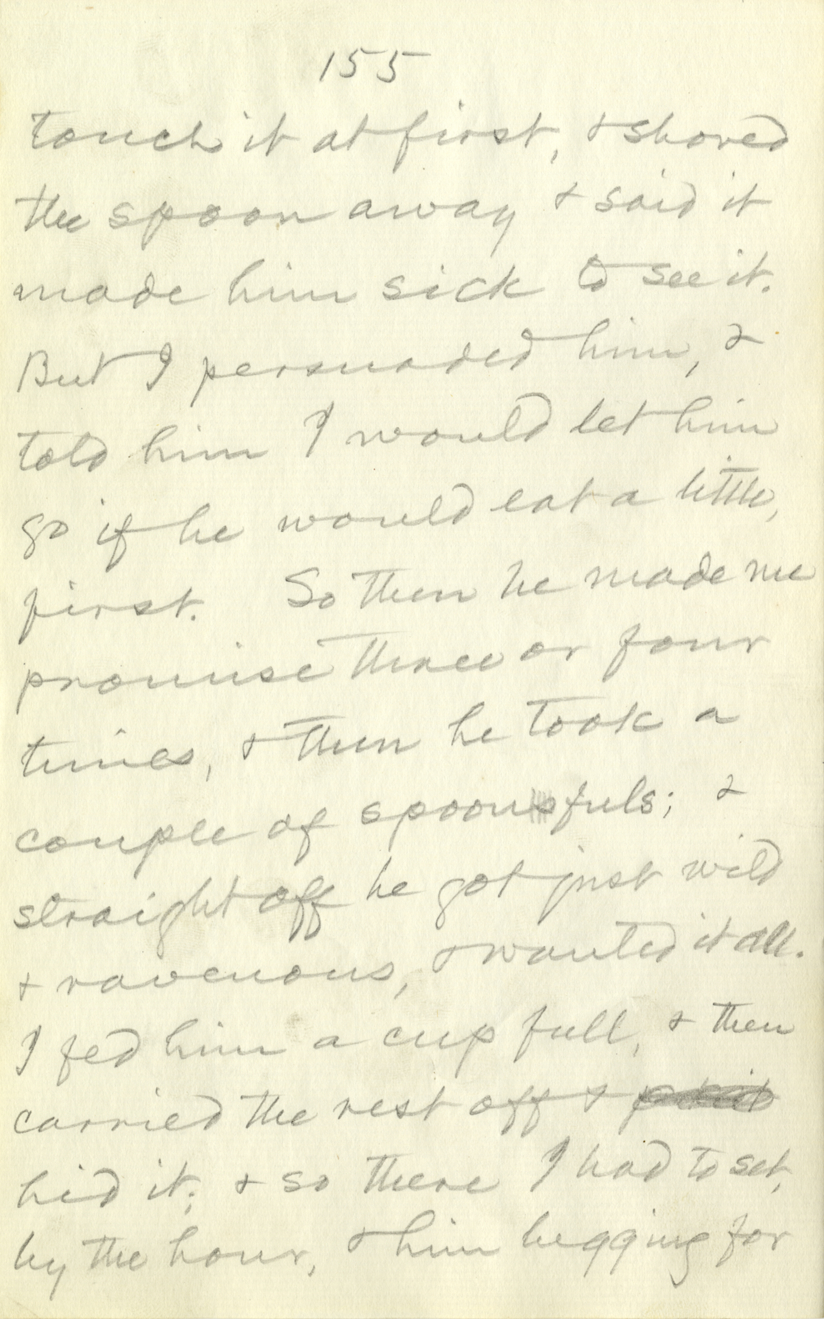 155
touch it at first, & shoved
the spoon away & said it
made him sick to see it.
But I persuaded him, &
told him I would let him
go if he would eat a little,
first. So then he made me
promise three or four
times, & then he took a
couple of spoonsfuls; &
straight off he got just wild
& ravenous, & wanted it all.
I fed him a cup full, & then
carried the rest off &
hid it; & so there I had to set,
by the hour, & him begging for